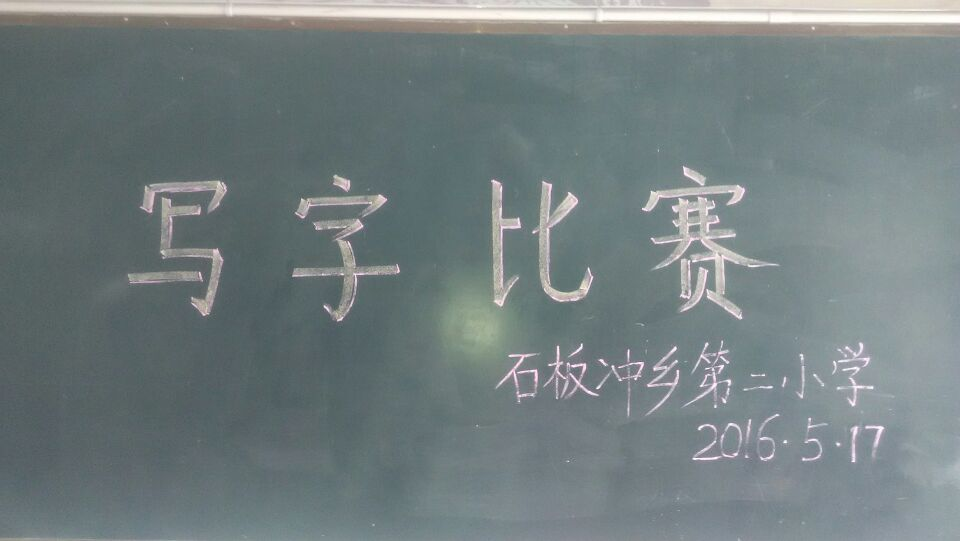 写字比赛
石板冲乡第二小学
2016.5.17